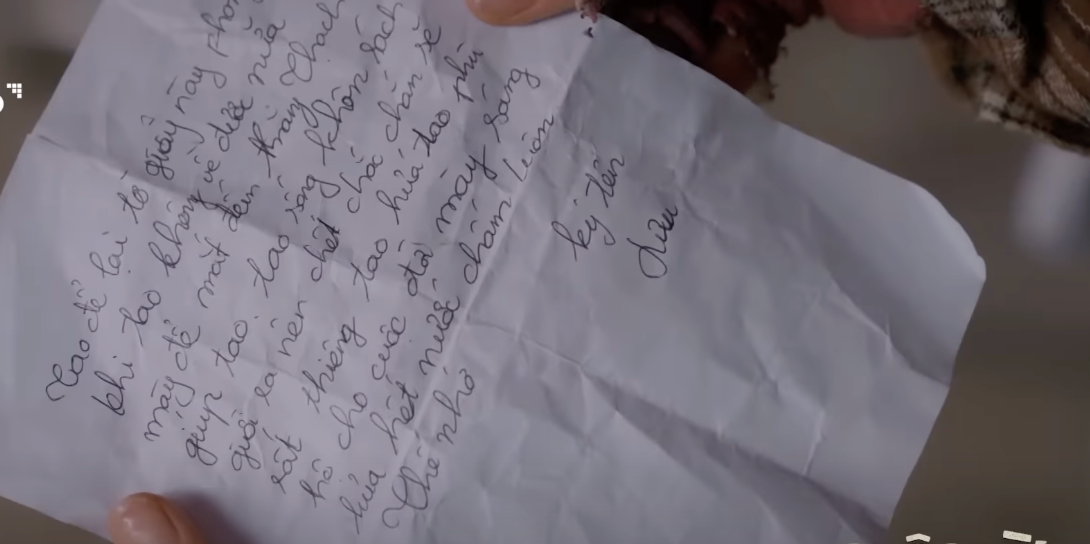 Tao để lại tờ giấy này phòn
khi tao không về được nữa
mày để mắt đến thằng Thạch
giúp tao. tao sống không sách
giữa ra nên chết chắc chắn sẽ
rất thiêng tao hứa tao phù
hộ cho cuộc đời mày sáng
hứa hết nước chấm luôn
Thế nhở
ký tên